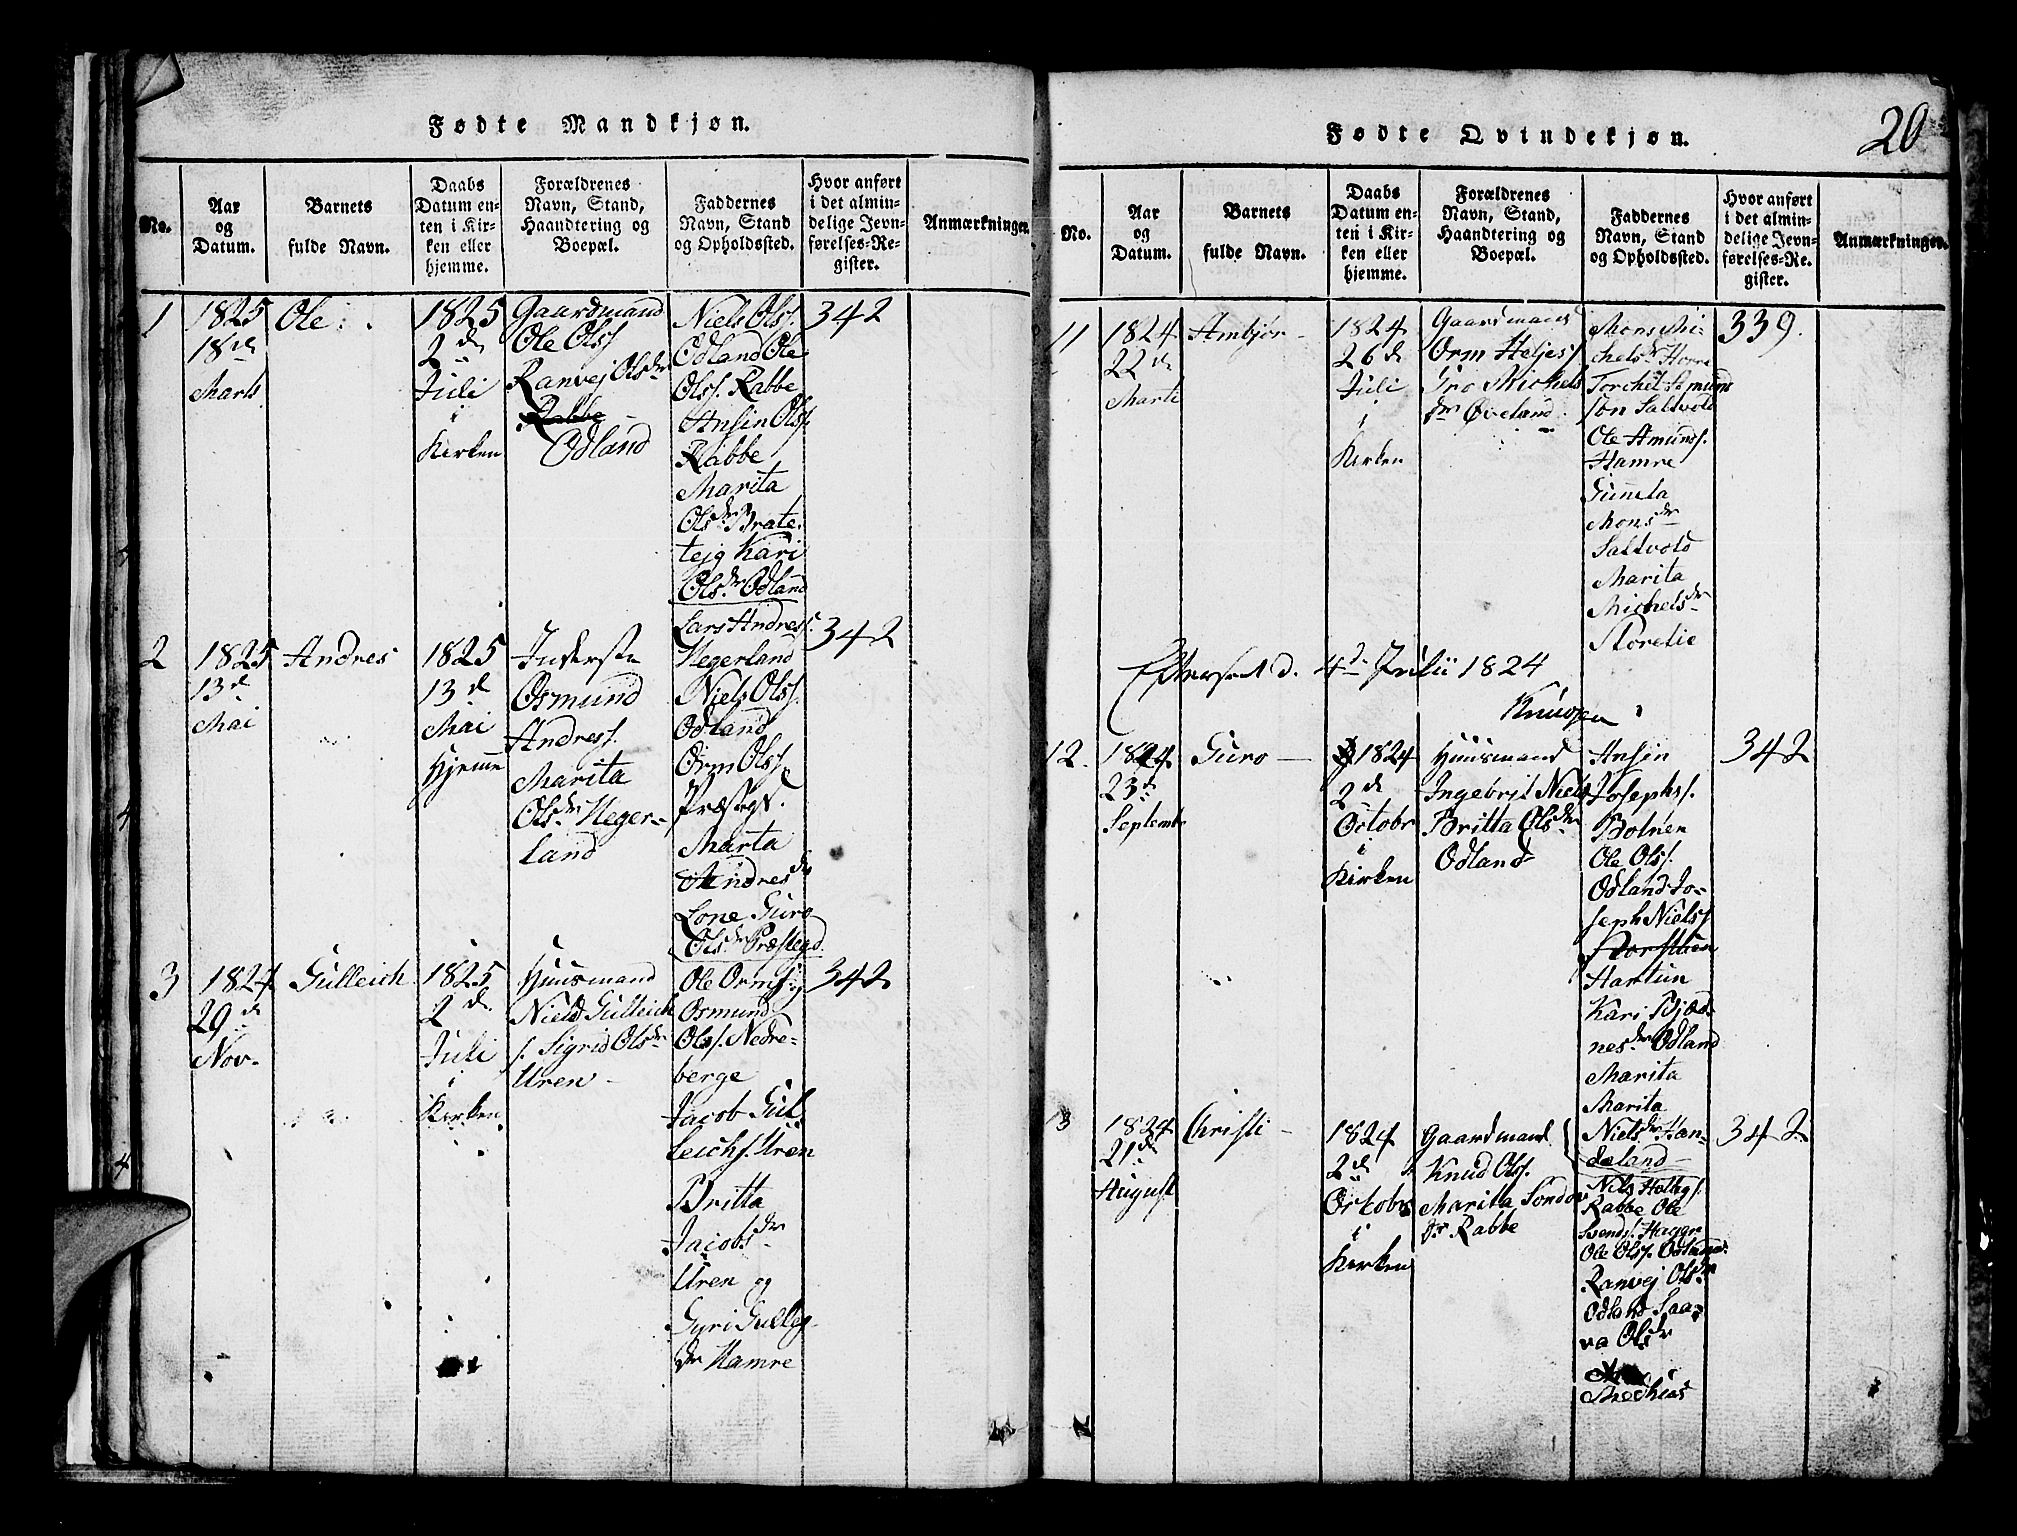 Fødte Mandkjøn.
No.
Aar
og
Datum.
Barnets
fulde Navn.
Daabs
Datum en-
ten i Kir-
ken eller
hjemme.
Forældrenes
Navn, Stand,
Haandtering og
Boepæl.
Faddernes
Navn, Stand
og Opholdssted.
Hvor anført
i det almin-
delige Jevn-
førelses-Re-
gister.
Anmærkninger.
1
1825
18de
Marts
Ole
1825
2de
Juli
i
Kirken
Gaardmand
Ole Olss.
Ranvej Olsdr
Rabbe
Odland
Niels Olss.
Odland Ole
Olss. Rabbe
Ansin Olss.
Rabbe
Marita
Olsdr Brate-
tejg Kari
Olsdr Odland
342
2
1825
13d
Mai
Andres
1825
13d
Mai
Hjemme
Inderste
Osmund
Andress.
Marita
Olsdr Heger-
land
Lars Andress.
Hegerland
Niels Olss.
Odland
Orm Olss.
Præstegs.
Marta
Andresdr
Lone Guro
Olsdr Præstegd.
342
3
1824
29de
Nov.
Gulleich
1825
2de
Juli
i
Kirken
Huusmand
Niels Gulleich
s. Sigrid Olsdr
Uren
Ole Ormss.
Osmund
Olss. Nedre-
berge
Jacob Gul
leichs. Uren
Britta
Jacobsdr
Uren og
Gyri Gulleg
dr Hamre
342
Fødte Qvindekjøn.
20
No.
Aar
og
Datum.
Barnets
fulde Navn.
Daabs
Datum en-
ten i Kir-
ken eller
hjemme.
Forældrenes
Navn, Stand,
Haandtering og
Boepæl.
Faddernes
Navn, Stand
og Opholdssted.
Hvor anført
i det almin-
delige Jevn-
førelses-Re-
gister.
Anmærkninger.
11
1824
22de
Marti
Ambjør
1824
26de
Juli
i
Kirken
Gaardmand
Orm Heljess.
Gro Michels
dr Øveland
Mons Mi-
chels
Torchel Samund
son Saltvold
Ole Amunds.
Hamre
Gunnela
Monsdr
Saltvold
Marita
Michelsdr
Storelie
339.
4d Julii 1824
Knudsen
12.
1824
23d
Septembr
Guro
1824
2de
Octobr
i
Kirken
Huusmand
Ingebrit Niels
Britta Olsdr
Odland
Ansin
Josephs.
Botnen
Ole Olss.
Odland Jo-
seph Nielss.
Hartun
Kari Bjød-
nesdr Odland
Marita
342
13
1824
21de
August
Christi
1824
2de
Octobr
i
Kirken
Gaardmand
Knud Olss.
Marita Sondov
dr Rabbe
Marita
Nielsdr Han-
deland
Nils Hellegs.
Rabbe Ole
Svends. Hagger
Ole Olss. Odland
Ranvej Olsdr
Odland Saa-
va Olsdr
Mechias
342